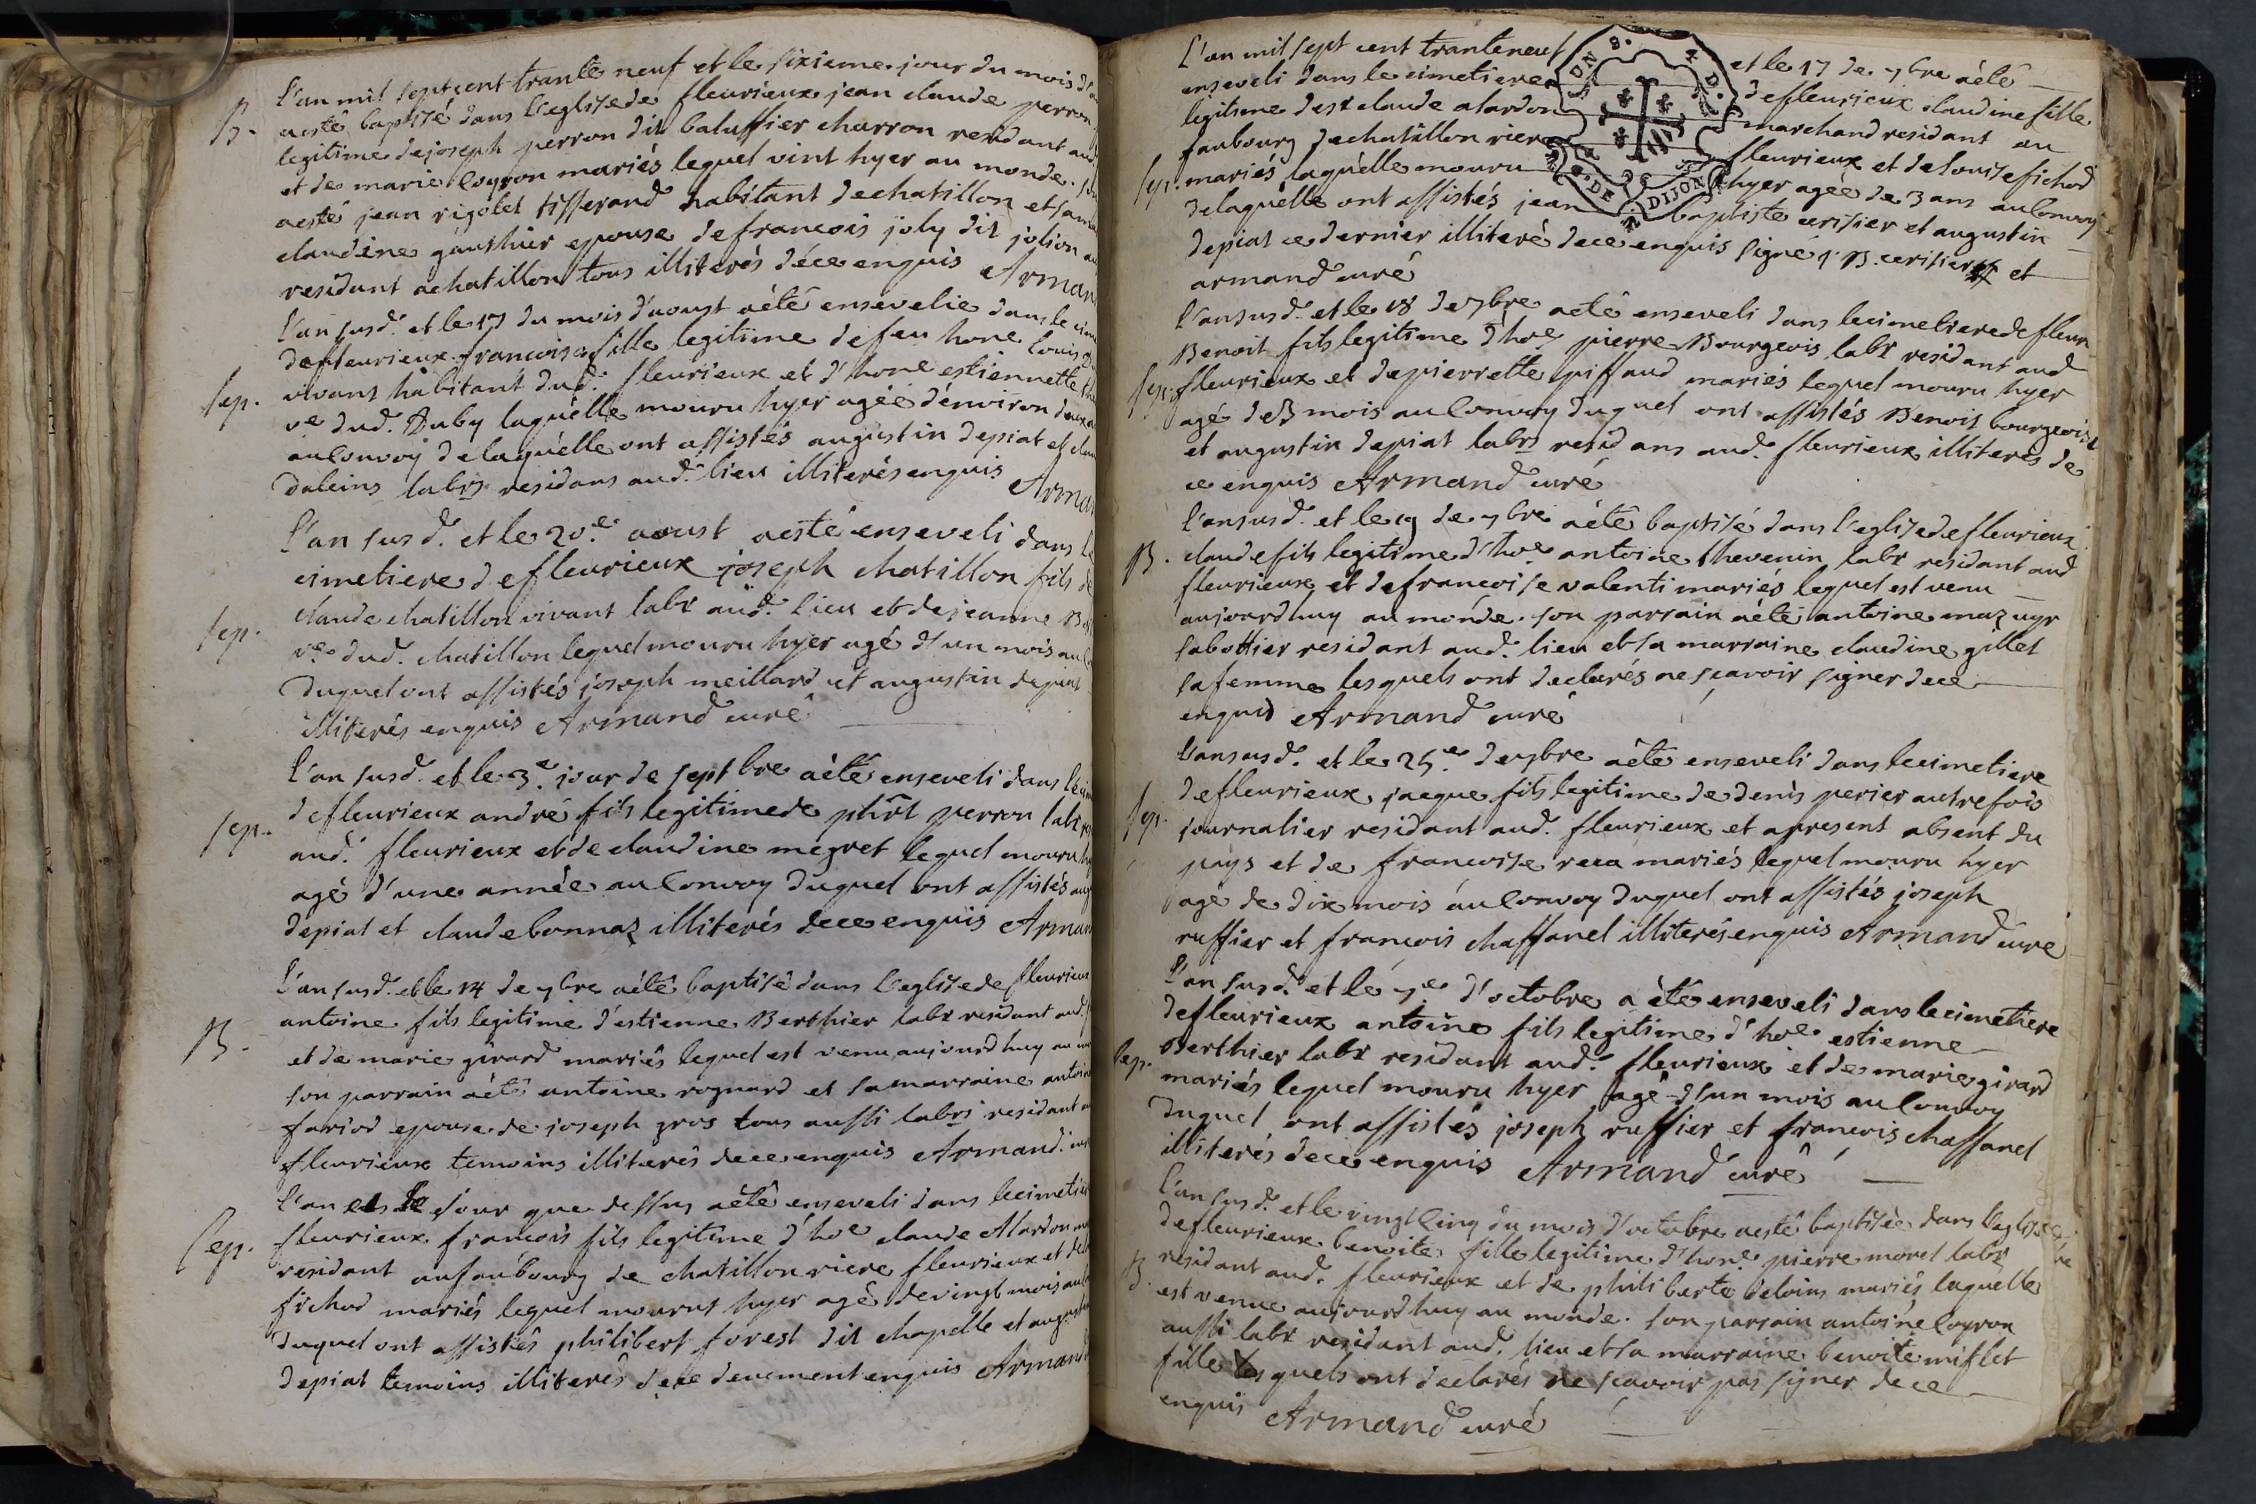 L'an mil sept cent trante neuf et le sixieme jour du mois d'
B. aesté baptisé dans l'eglise de fleurieux jean claude perron
legitime de joseph perron dit baluffier charron residant aud
et de marie loyron mariés lequel vint hyer au monde.
aesté jean rigolet tisserand habitant de chatillon et sa
claudine gauthier epouse de francois joly dit jolion
residant a chatillon tous illiterés dece enquis Arman
L'an susd. et le 17 du mois d'aoust aété ensevelie dans le
de fleurieux francoise fille legitime de feu hone louis
Sep. vivant habitant dud. fleurieux et d'hone estiennette
ve dud. Auby laquelle mouru hyer agée d'environ deux
au convoy de laquelle ont assistés augustin depiat et
daleins labrs residans aud. lieu illiterés enquis Arma
L'an susd. et le 20.e aoust aesté enseveli dans
cimetiere de fleurieux joseph chatillon fils de
claude chatillon vivant labr aud. lieu et de jeanne
Sep. ve dud. chatillon lequel mouru hyer agé d'un mois au
duquel ont assistés joseph meillard et augustin depiat
illiterés enquis Armand curé
L'an susd. et le 3.e jour de septbre aété enseveli dans le
de fleurieux andré fils legitime de phirt perron labr
Sep. aud. fleurieux et de claudine megret lequel mouru
agé d'une année au convoy duquel ont assistés
depiat et claude bonnaz illiterés dece enquis Arman
L'an susd. et le 14 de 7bre aété baptisé dans l'eglise de fleurieux
antoine fils legitime d'estienne Berthier labr residant aud.
B. et de marie girard mariés lequel est venu aujourdhuy au
son parrain aété antoine rognard et sa marraine antoine
fariod epouse de joseph gros tous aussi labrs residant
fleurieux temoins illiterés dece enquis Armand
L'an et le jour que dessus aété enseveli dans le cimetie
Sep. fleurieux francois fils legitime d'hoe claude Alardon
residant au faubourg de chatillon riere fleurieux et de
fichod mariés lequel mourut hyer agé de vingt mois au
duquel ont assistés philibert forest dit chapelle et
depiat temoins illiterés dece deuement enquis Armand
L'an mil sept cent tranteneuf et le 17 de 7bre aété
enseveli dans le cimetiere de fleurieux claudine fille
legitime de sr claude alardon marchand residant au
faubourg de chatillon riere fleurieux et de louise fichod
Sep. mariés laquelle mouru hyer agée de 3 ans au convoy
de laquelle ont assistés jean baptiste cerisier et augustin
depiat ce dernier illiteré dece enquis signé j. B. cerisier et
armand curé
L'an susd. et le 18 de 7bre aeté enseveli dans le cimetiere de fleur
Benoit fils legitime d'hoe pierre Bourgeois labr residant aud
Sep. fleurieux et de pierrette piffaud mariés lequel mouru hyer
agé de 3 mois au convoy duquel ont assistés Benoit bourgeois
et augustin depiat labrs residans aud. fleurieux illiterés de
ce enquis Armand curé
L'an susd. et le 19 de 7bre aété baptisé dans l'eglise de fleurieux
B. claude fils legitime d'hoe antoine thevenin labr residant aud
fleurieux et de francoise valenti mariés lequel est venu
aujourdhuy au monde. son parrain aété antoine mazuyr
sabottier residant aud. lieu et sa marraine claudine gillet
sa femme lesquels ont declarés ne scavoir signer dece
enquis Armand curé
L'an susd. et le 25.e de 7bre aété enseveli dans le cimetiere
de fleurieux jacque fils legitime de denis perier autrefois
Sep. journalier residant aud. fleurieux et apresent absent du
pays et de francoise reca mariés lequel mouru hyer
agé de dix mois au convoy duquel ont assistés joseph
ruffier et francois chaffanel illiterés enquis Armand curé
L'an susd. et le 7e d'octobre a été enseveli dans le cimetiere
de fleurieux antoine fils legitime d'hoe estienne
Sep. Berthier labr residant aud. fleurieux et de marie girard
mariés lequel mouru hyer agé d'un mois au convoy
duquel ont assistés joseph ruffier et francois chaffanel
illiterés dece enquis Armand curé
L'an susd. et le vingt cinq du mois d'octobre aesté baptisée dans l'eglise
de fleurieux benoite fille legitime d'hone. pierre morel labr
B. residant aud. fleurieux et de philiberte beloins mariés laquelle
est venue aujourdhuy au monde. son parrain antoine loyron
aussi labr residant aud. lieu et sa marraine benoite miflet
fille lesquels ont declarés ne scavoir pas signer dece
enquis Armand curé